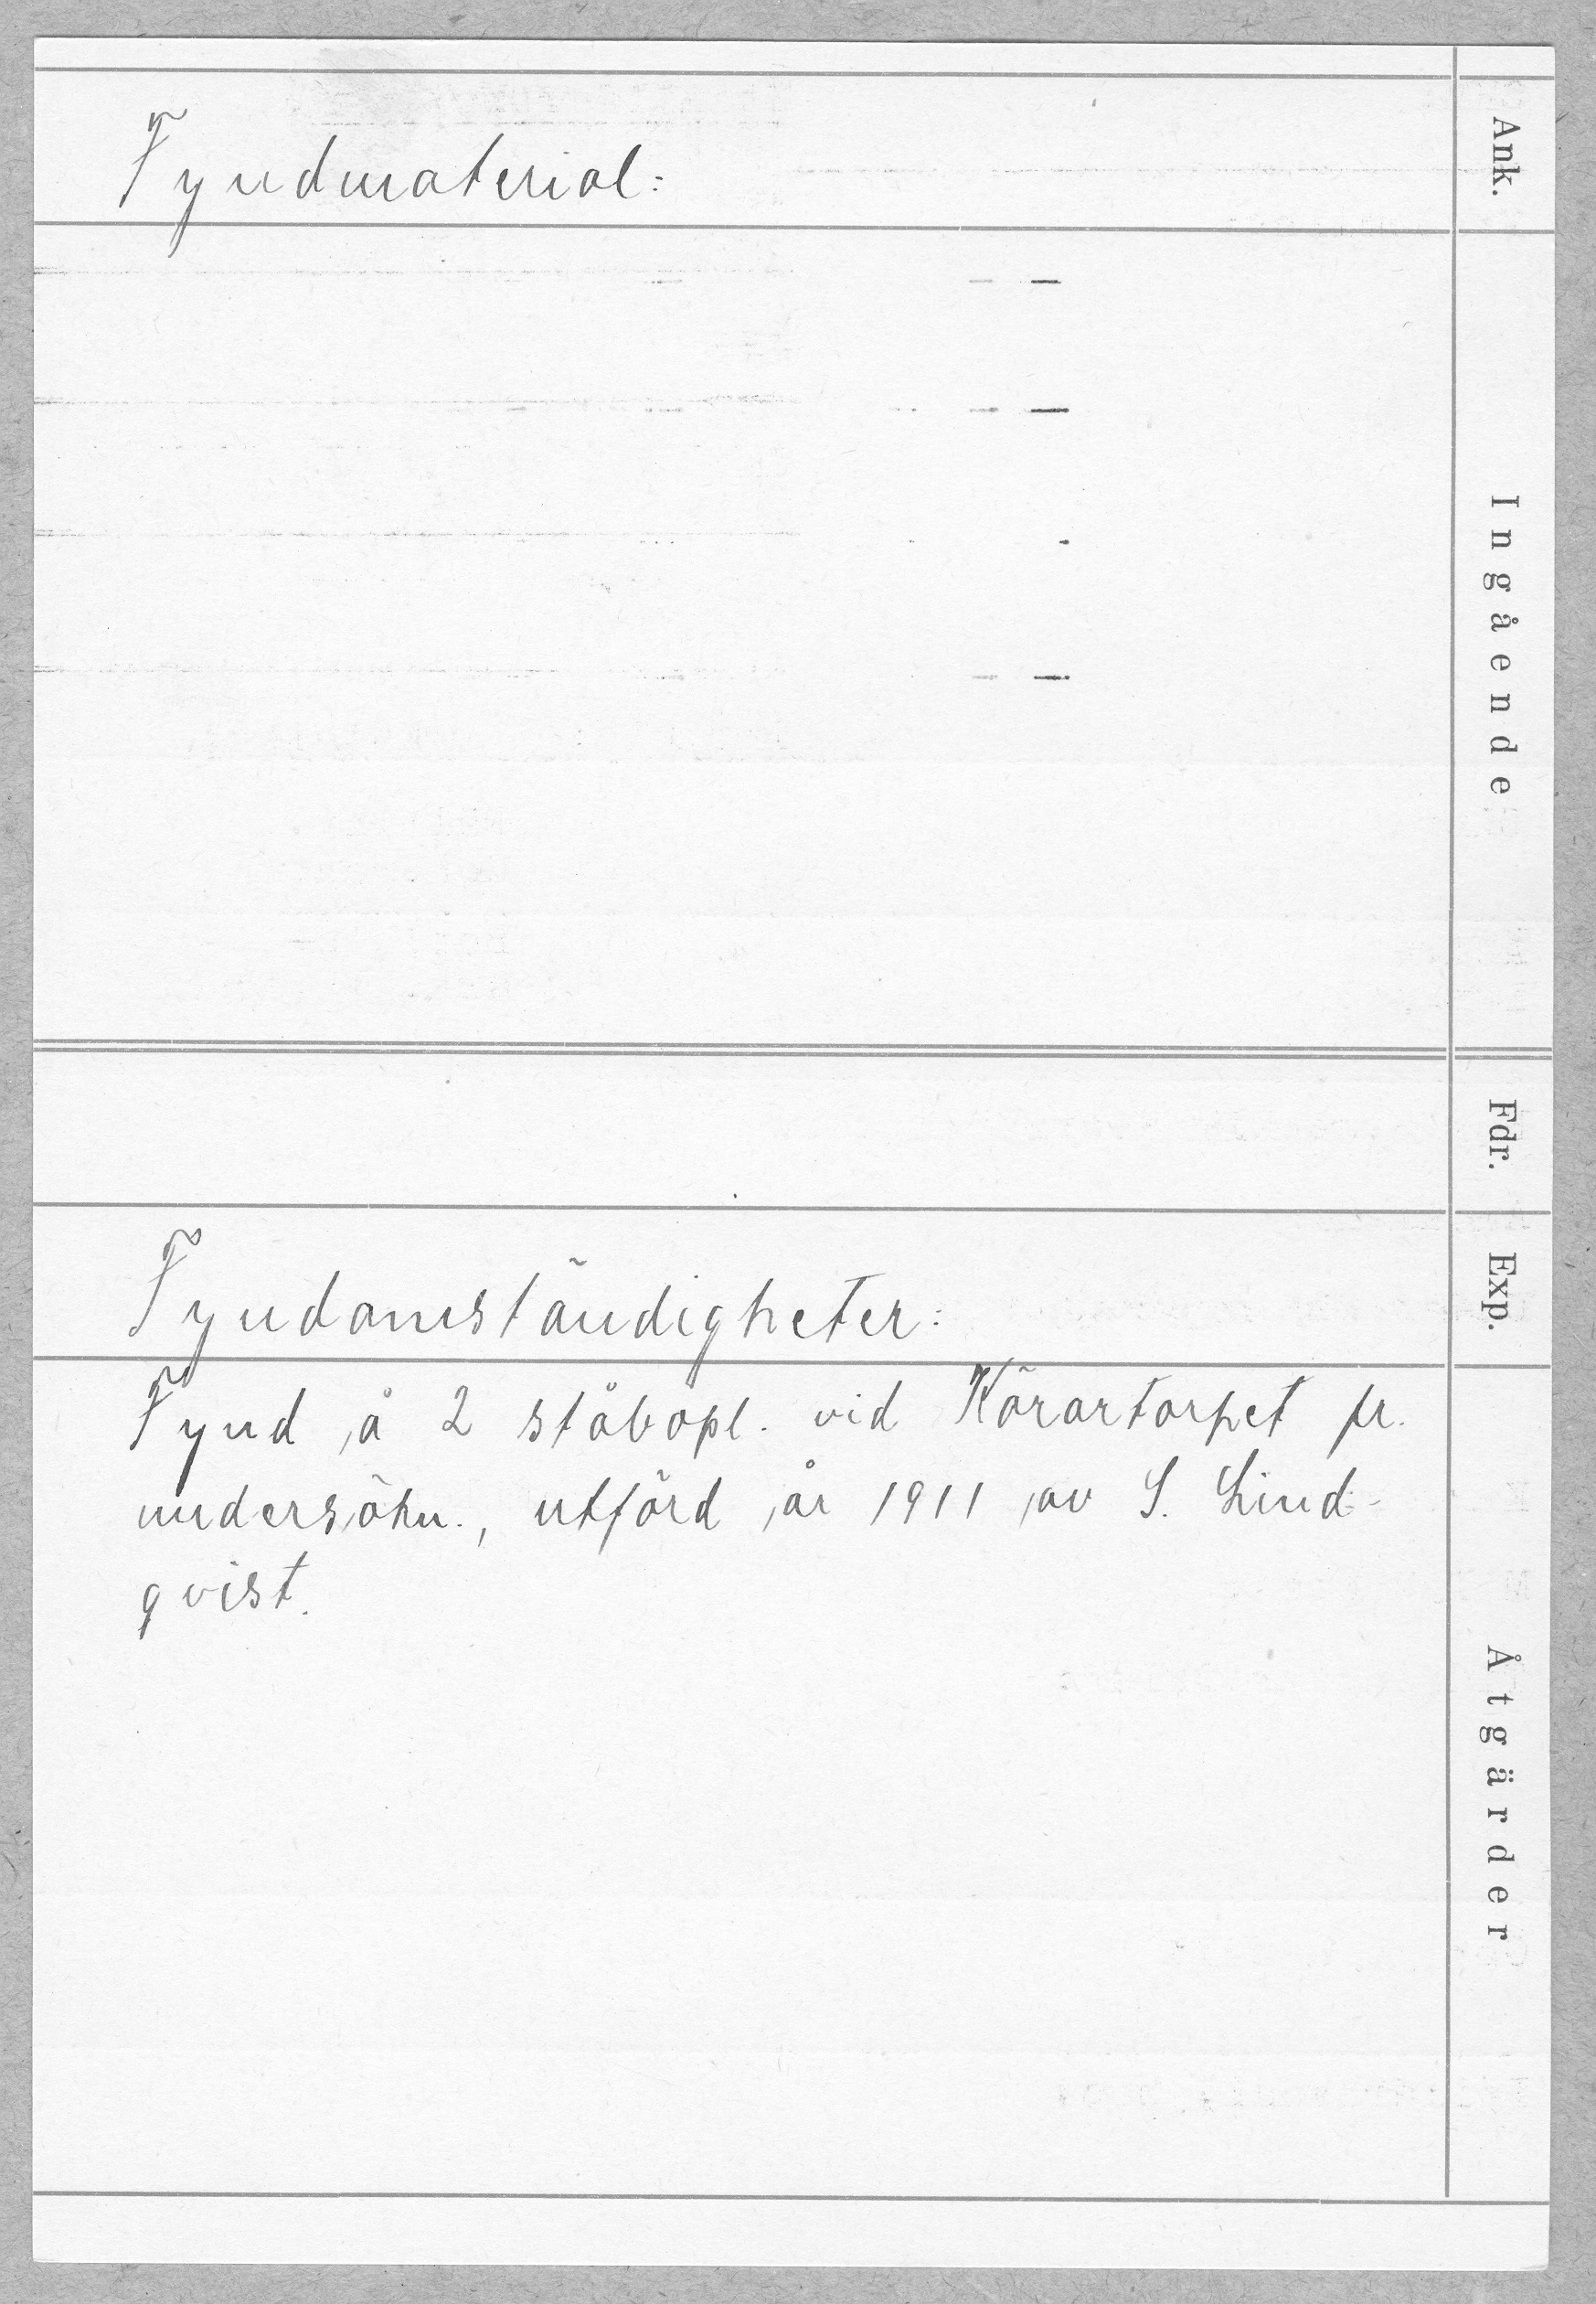 Fyndmaterial:
Fyndomständigheter:
Fynd å 2 ståbopl. vid Körartorpet fr.
undersökn., utförd år 1911 av S. Lind-
qvist.
Ank.
Ingående
Fdr.
Exp.
Åtgärder